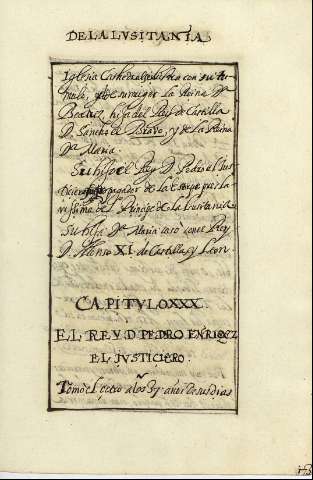 DE LA LVSITANIA
Iglesia Cathedral de con su tu-
mulo, de su muger la Reina Dª
Beatriz hija del Rey de Castilla
D. Sancho el Bravo, y de la Reina
Dª Maria.
Su hijo el Rey D. Pedro el Jus-
de la por la
del Principe de la Lusitania
Su hija Dª Maria casó con el Rey
D. Alonso XI de Castilla, y Leon
CAPITVLO XXX.
EL REY D. PEDRO ENRIQEZ
EL JVSTICIERO.
Tomó el cetro a los 37 años de sus dias